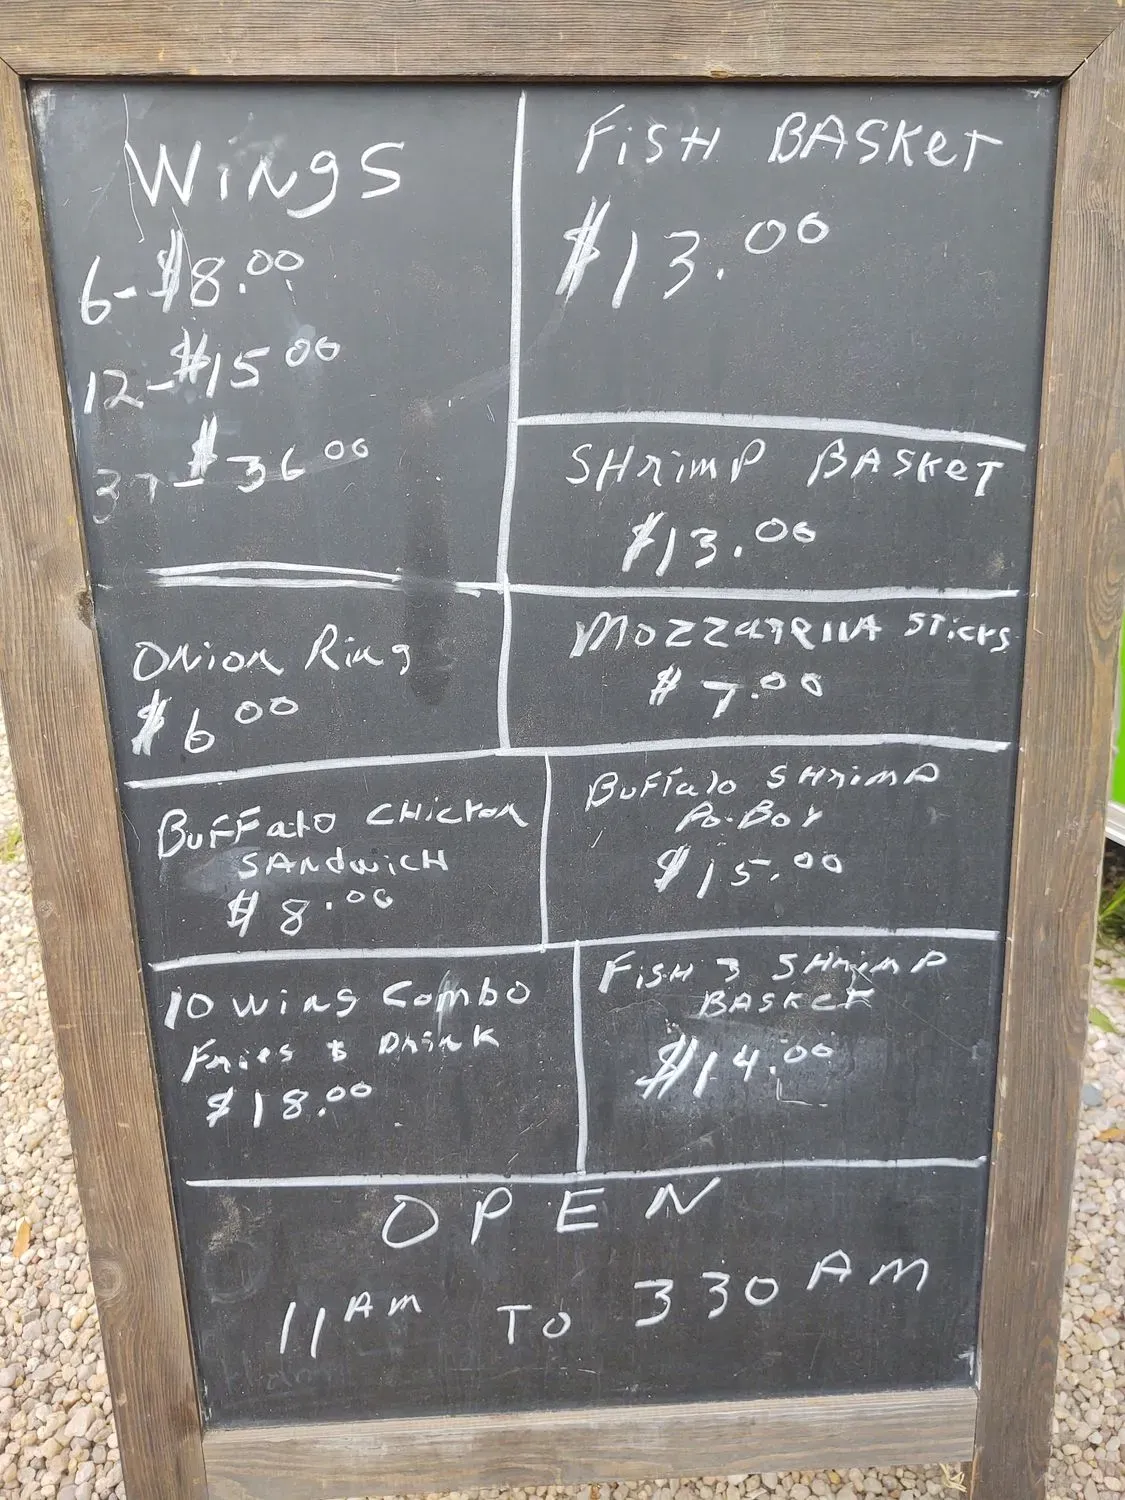 Wings
6-$8.00
12-$15 00
$36 00
FiSH BASKET
$13.00
SHrimP BASKET
$13.00
Onion Ring
$6 00
MOZZarRIllA STicks
$7.00
BuFFalo CHicken
SANdwicH
$8.00
BuFFalo SHrimP
Po-Boy
$15.00
10 Wing Combo
Fries & Drink
$18.00
FisH 3 SHrimP
BASKET
$14.00
OPEN
11 AM TO 3 30 AM